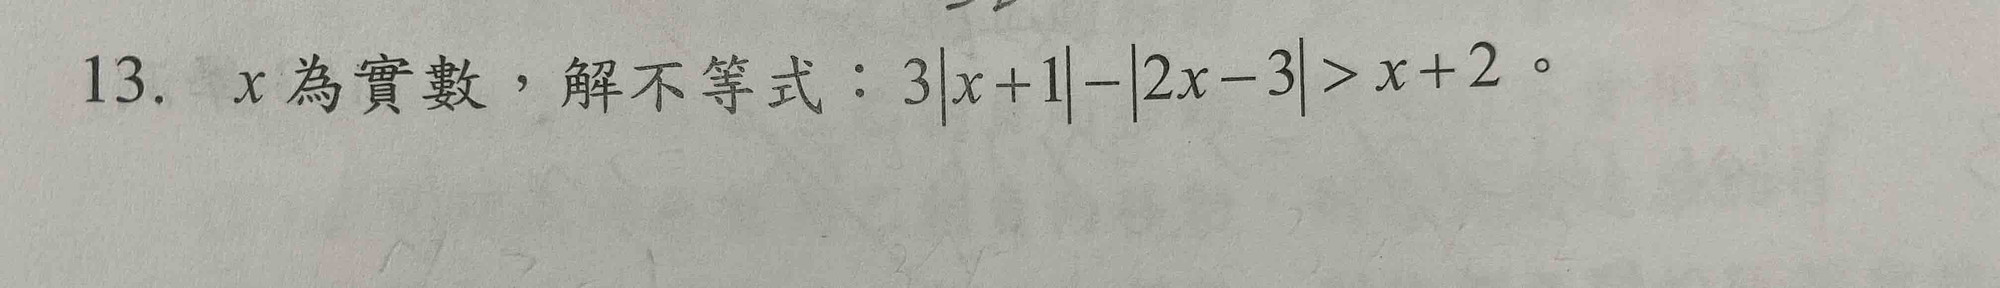 13. x 為實數，解不等式：3|x+1|−|2x−3| > x+2。